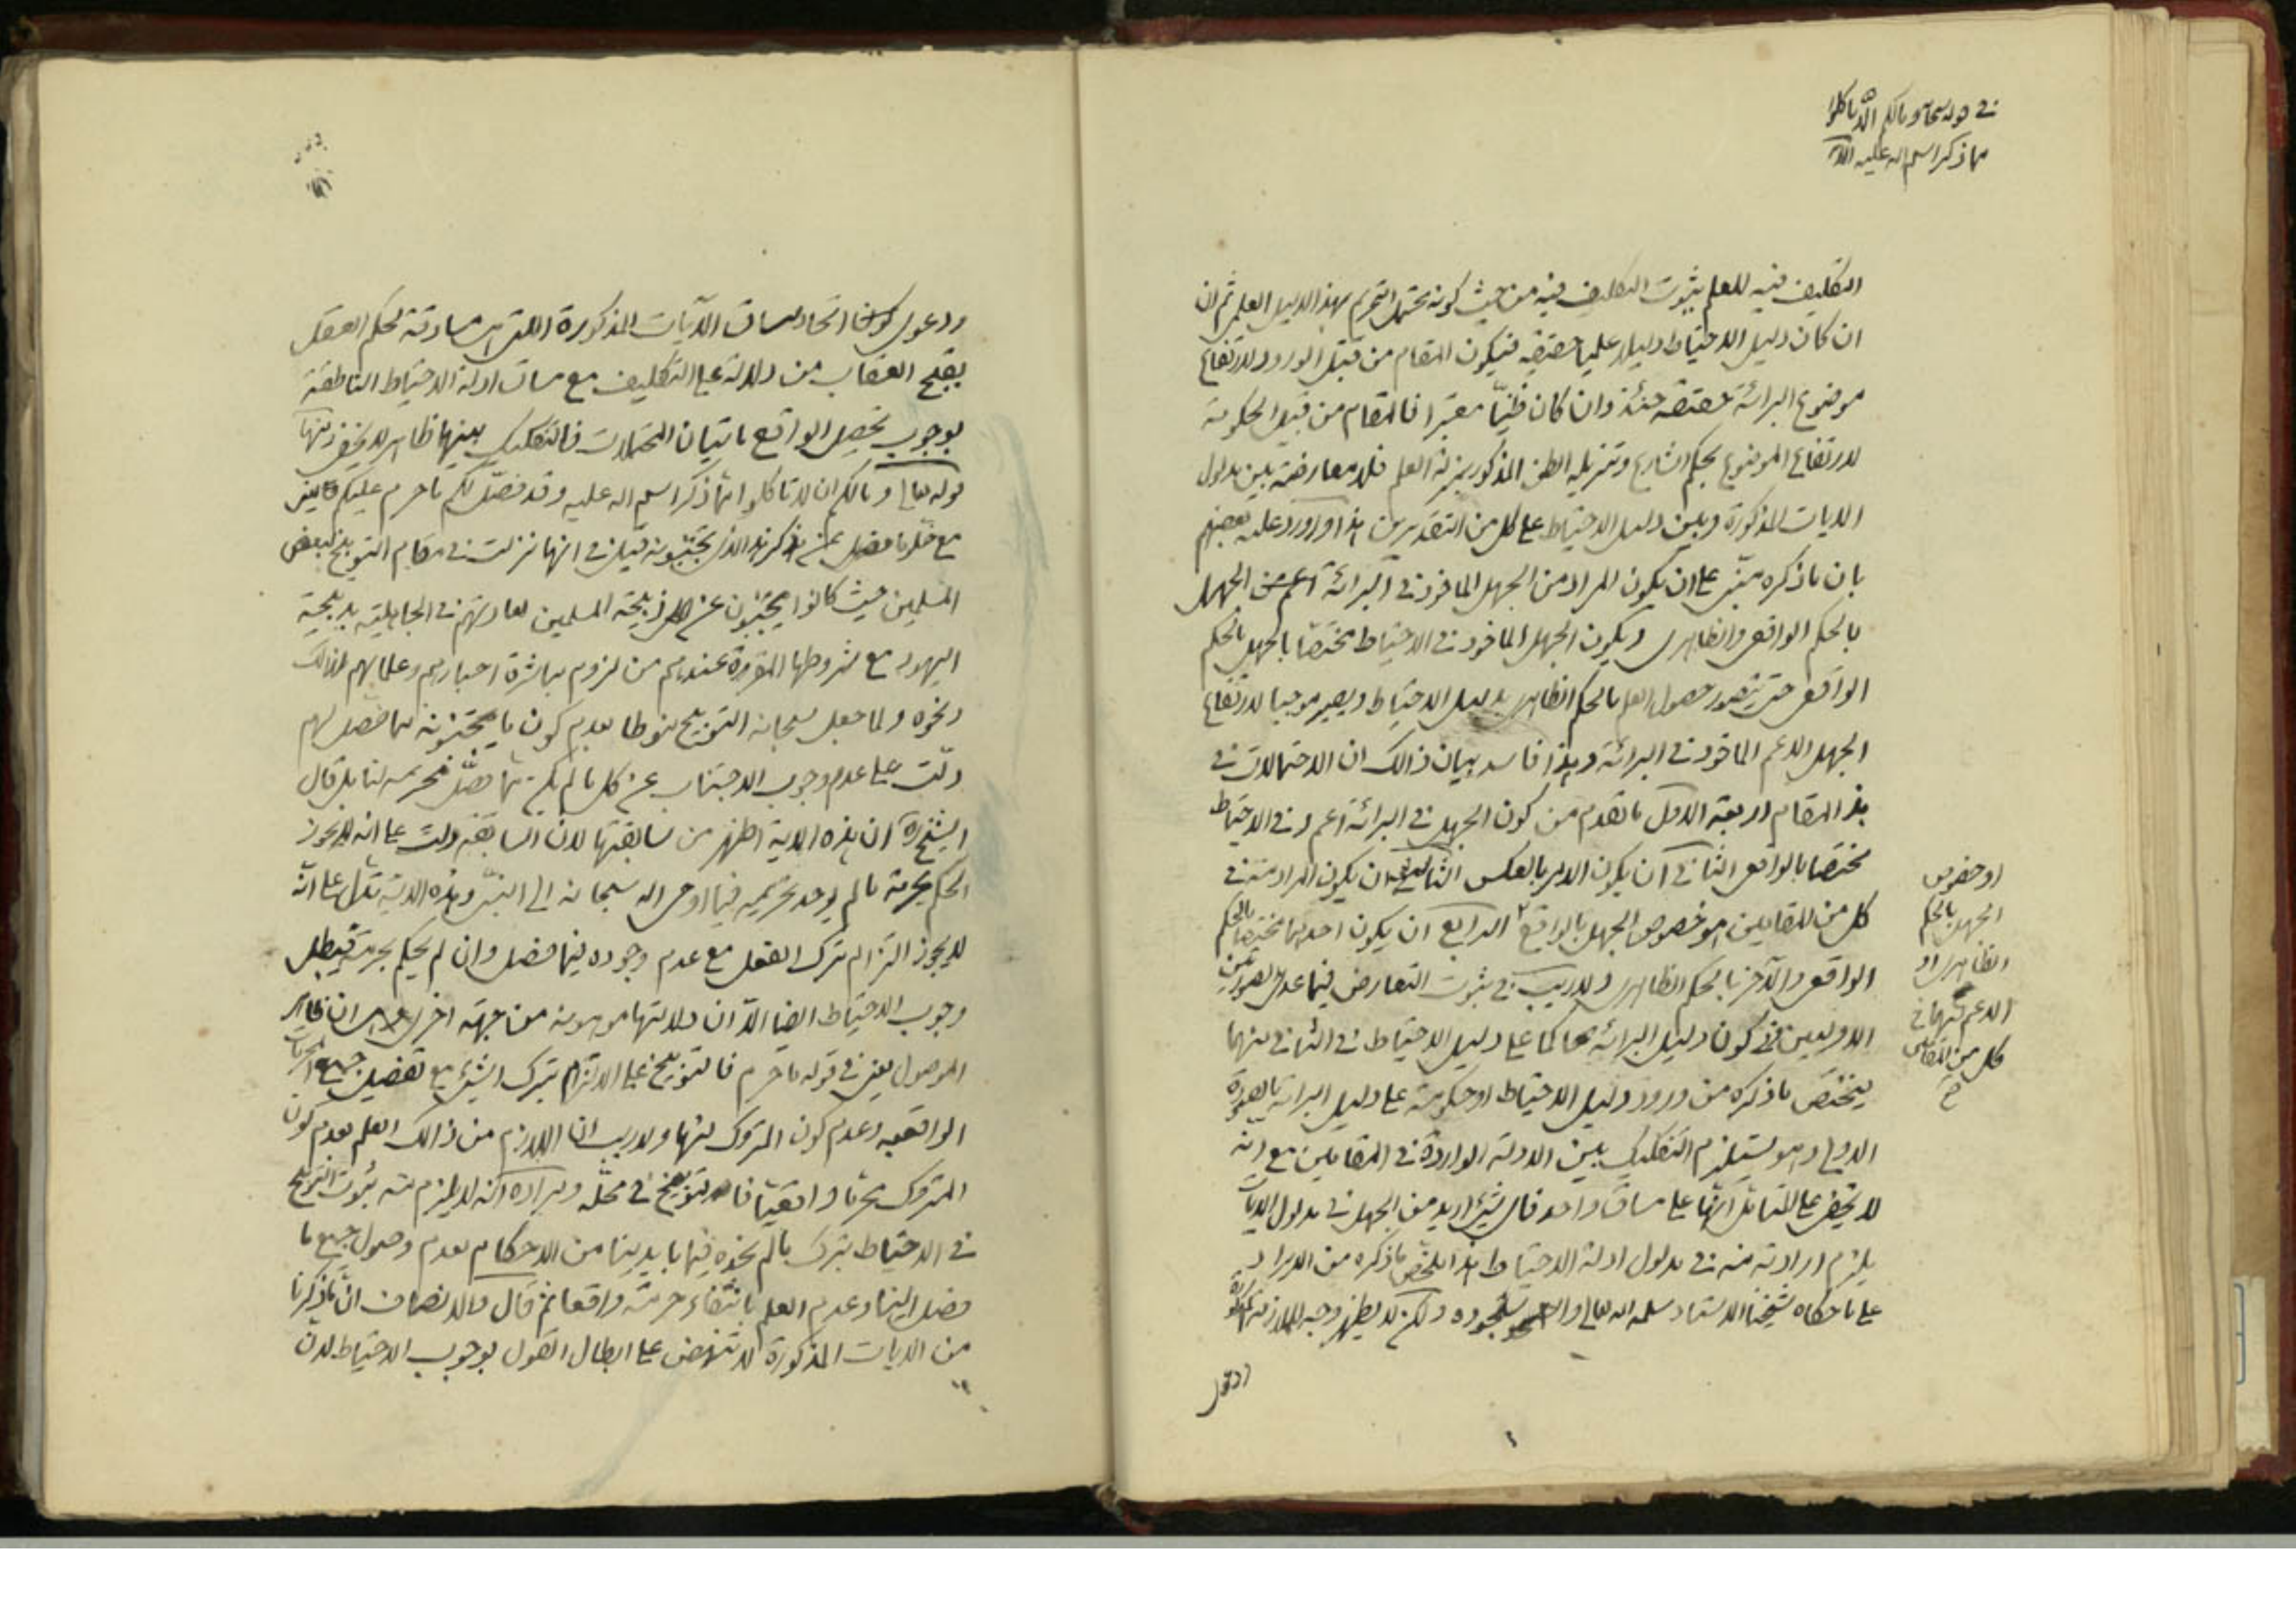 في قوله سبحانه ومالكم الا تاكلوا
مما ذكر اسم اله عليه الآية
التكليف فيه للعلم بثبوت التكليف فيه من حيث كونه محتمل التحريم بهذا الدليل العلمي ثم ان
ان كان دليل الاحتياط دليلا علميا حقيقة فيكون المقام من قبيل الورود لارتفاع
موضوع البرائة حقيقة حينئذ وان كان ظنيّا معتبرا فالمقام من قبيل الحكومة
لارتفاع الموضوع بحكم الشارع وتنزيله الظن المذكور بمنزلة العلم فلا معارضة بين مدلول
الايات المذكورة وبين دليل الاحتياط على كل من التقديرين هذا واورد عليه بعضهم
بان ما ذكره مبنيّ على ان يكون المراد من الجهل الماخوذ في البرائة اعم من الجهل
بالحكم الواقعي والظاهري ويكون الجهل الماخوذ في الاحتياط مختصّا بالجهل بالحكم
الواقعي حتى يتصور حصول العلم بالحكم الظاهري بدليل الاحتياط ويصير موجبا لارتفاع
الجهل الاعم الماخوذ في البرائة وهذا فاسد بيان ذالك ان الاحتمالات في
هذا المقام اربعة الاول ما تقدم من كون الجهل في البرائة اعم وفي الاحتياط
مختصا بالواقعي الثاني ان يكون الامر بالعكس الثالث ان يكون المراد منه في
كل من المقامين هو خصوص الجهل بالواقع الرابع ان يكون احدهما مختصا بالحكم
الواقعي والآخر بالحكم الظاهري ولا ريب في ثبوت التعارض فيما عدى الصورتين
الاوليين في كون دليل البرائة حاكما على دليل الاحتياط في الثاني منهما
فيختص ما ذكره من ورود دليل الاحتياط او حكومته على دليل البرائة بالصورة
الاولى وهو يستلزم التفكيك بين الادلة الواردة في المقامين مع انّه
لا يخفى على المتامّل انّها على مساق واحد فاي شيء اريد من الجهل في مدلول الايات
يلزم ارادته منه في مدلول ادلة الاحتياط هذا ملخص ما ذكره من الايراد
على ما حكاه شيخنا الاستاد سلمه اله تعالى ولكن لا يظهر وجه الملازمة المذكورة
او خصوص
الجهل بالحكم
الظاهري او
الاعم منهما في
كل من المقامين
صح
ودعوى
ودعوى كون اتحاد مساق الآيات المذكورة اللتي هي مساوقة لحكم العقل
بقبح العقاب من دلالة على التكليف مع مساق ادلة الاحتياط الناطقة
بوجوب تحصيل الواقع باتيان المحتملات فالتفكيك بينها ظاهر لا يخفى ومنها
قوله تعالى ومالكم ان لا تاكلوا مما ذكر اسم اله عليه وقد فصّل لكم ما حرم عليكم يعني
مع خلو ما فصل عن ذكر هذا الذي تجتنبونه قيل في انها نزلت في مقام التوبيخ لبعض
المسلمين حيث كانوا يجتنبون عن اكل ذبيحة المسلمين لعادتهم في الجاهلية بذبيحة
اليهود مع شروطها المقررة عندهم من لزوم مباشرة احبارهم وعلمائهم لذالك
ونحوه ولما جعل سبحانه التوبيخ منوطا بعدم كون ما يجتنبونه مما فصل لهم
دلّت على عدم وجوب الاجتناب عن كل ما لم يكن مما فصّل تحريمه لنا بل قال
الشيخ ره ان هذه الاية اظهر من سابقتها لان السابقة دلت على انه لا يجوز
الحكم بحرمة ما لم يوجد تحريمه فيما اوحى اله سبحانه الى النبيّ وهذه الاية تدل على انّه
لا يجوز التزام ترك الفعل مع عدم وجوده فيما فصل وان لم يحكم بحرمته فيبطل
وجوب الاحتياط ايضا الّا ان دلالتها موهونة من جهة اخرى وهي ان ظاهر
الموصول يعني في قوله ما حرم فالتوبيخ على الالتزام بترك الشيء مع تفصيل جميع المحرمات
الواقعية وعدم كون المتروك منها ولا ريب ان اللازم من ذالك العلم بعدم كون
المتروك محرما واقعيّا فالتوبيخ في محلّه ومراده انه لا يلزم منه ثبوت التوبيخ
في الاحتياط بترك ما لم نجده فيما بايدينا من الاحكام بعدم وصول جميع ما
فصل الينا وعدم العلم بانتفاء حرمته واقعا ثم قال والانصاف انّ ما ذكرنا
من الايات المذكورة لا تنهض على ابطال القول بوجوب الاحتياط لان